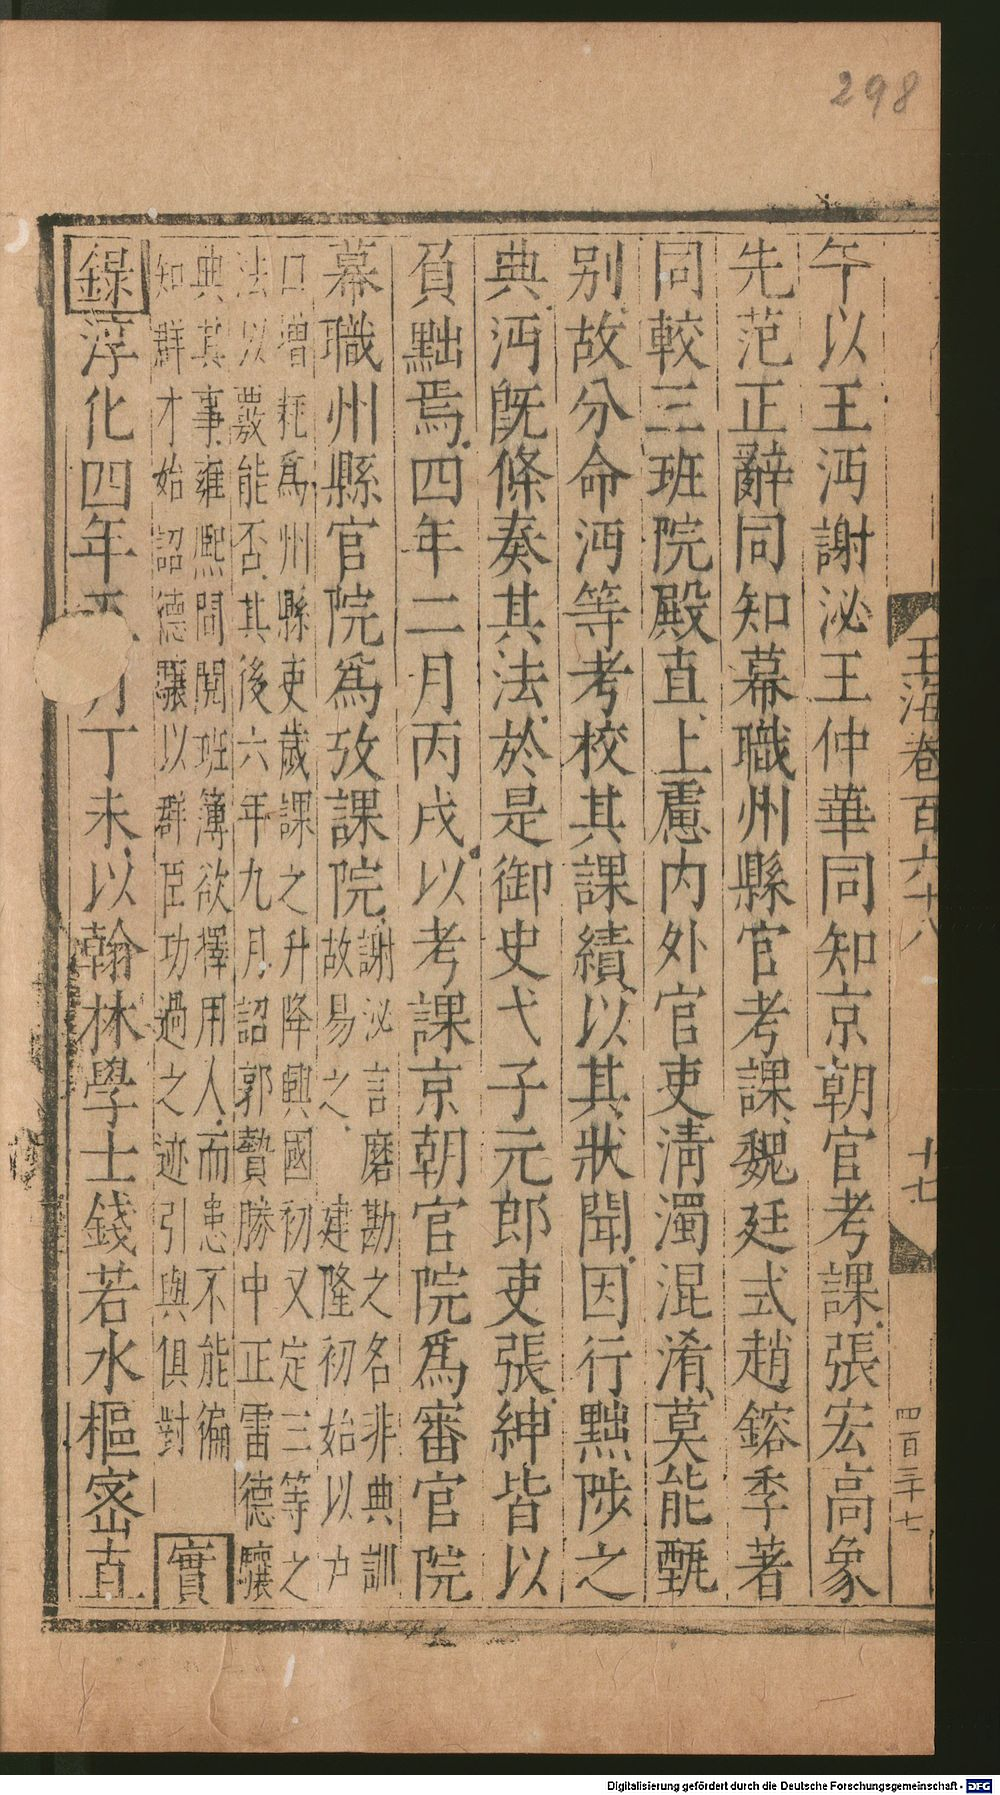 298
玉海卷百六十八
十七
四百三十七
午以王沔謝泌王仲華同知京朝官考課張宏高象
先范正辭同知幕職州縣官考課魏廷式趙鎔季著
同較三班院殿直上慮内外官吏清濁混淆莫能甄
别故分命沔等考校其課績以其狀聞因行黜陟之
典沔旣條奏其法於是御史弋子元郎吏張紳皆以
負黜焉四年二月丙戌以考課京朝官院爲審官院
幕職州縣官院爲攷課院
謝泌言磨勘之名非典訓
故易之 建隆初始以户
口增耗爲州縣吏歲課之升降興國初又定三等之
法以覈能否其後六年九月詔郭贄滕中正雷德驤
典其事雍熙間閱班簿欲擇用人而患不能徧
知群才始詔德驤以群臣功過之迹引與俱對
實
錄淳化四年
月丁未以翰林學士錢若水樞宻直
Digitalisierung gefördert durch die Deutsche Forschungsgemeinschaft - DFG